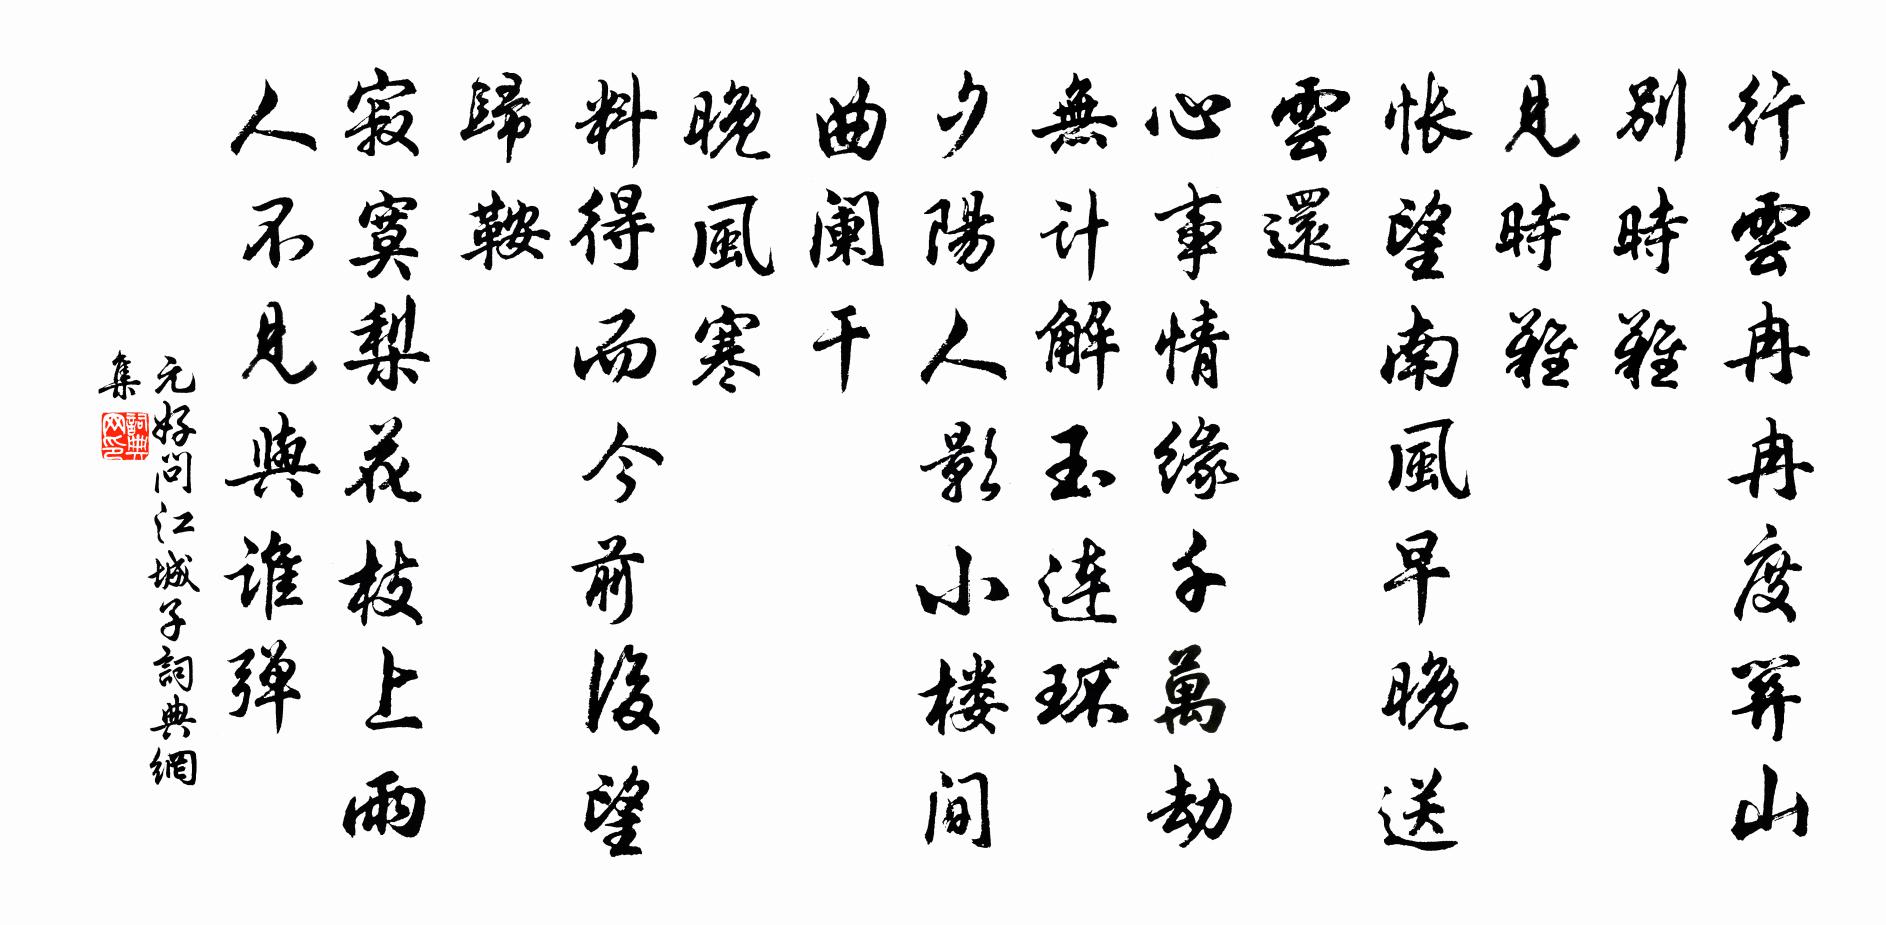 行雲冉冉度関山
別時難
見時難
悵望南風早晚送
雲還
心事情緣千萬劫
無計解玉連環
夕陽人影小楼间
曲阑干
晚風寒
料得而今前後望
歸鞍
寂寞梨花枝上雨
人不見與谁弹
元好问江城子詞典網
集
詞典
网印